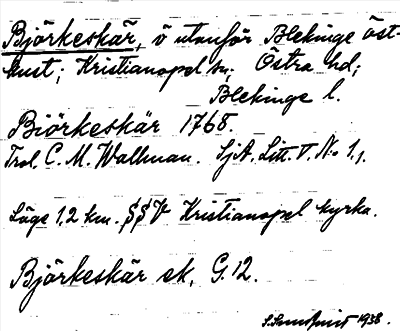 Björkeskär, ö utanför Blekinge öst-
kust; Kristianopel sn; Östra hd;
Blekinge l.
Biörkeskär 1768.
Trol. C. M. Wallman. SjA. Litt. V. No 1,1.
Läge 1,2 km. SSV Kristianopel kyrka.
Björkeskär ek. G. 12.
1938.